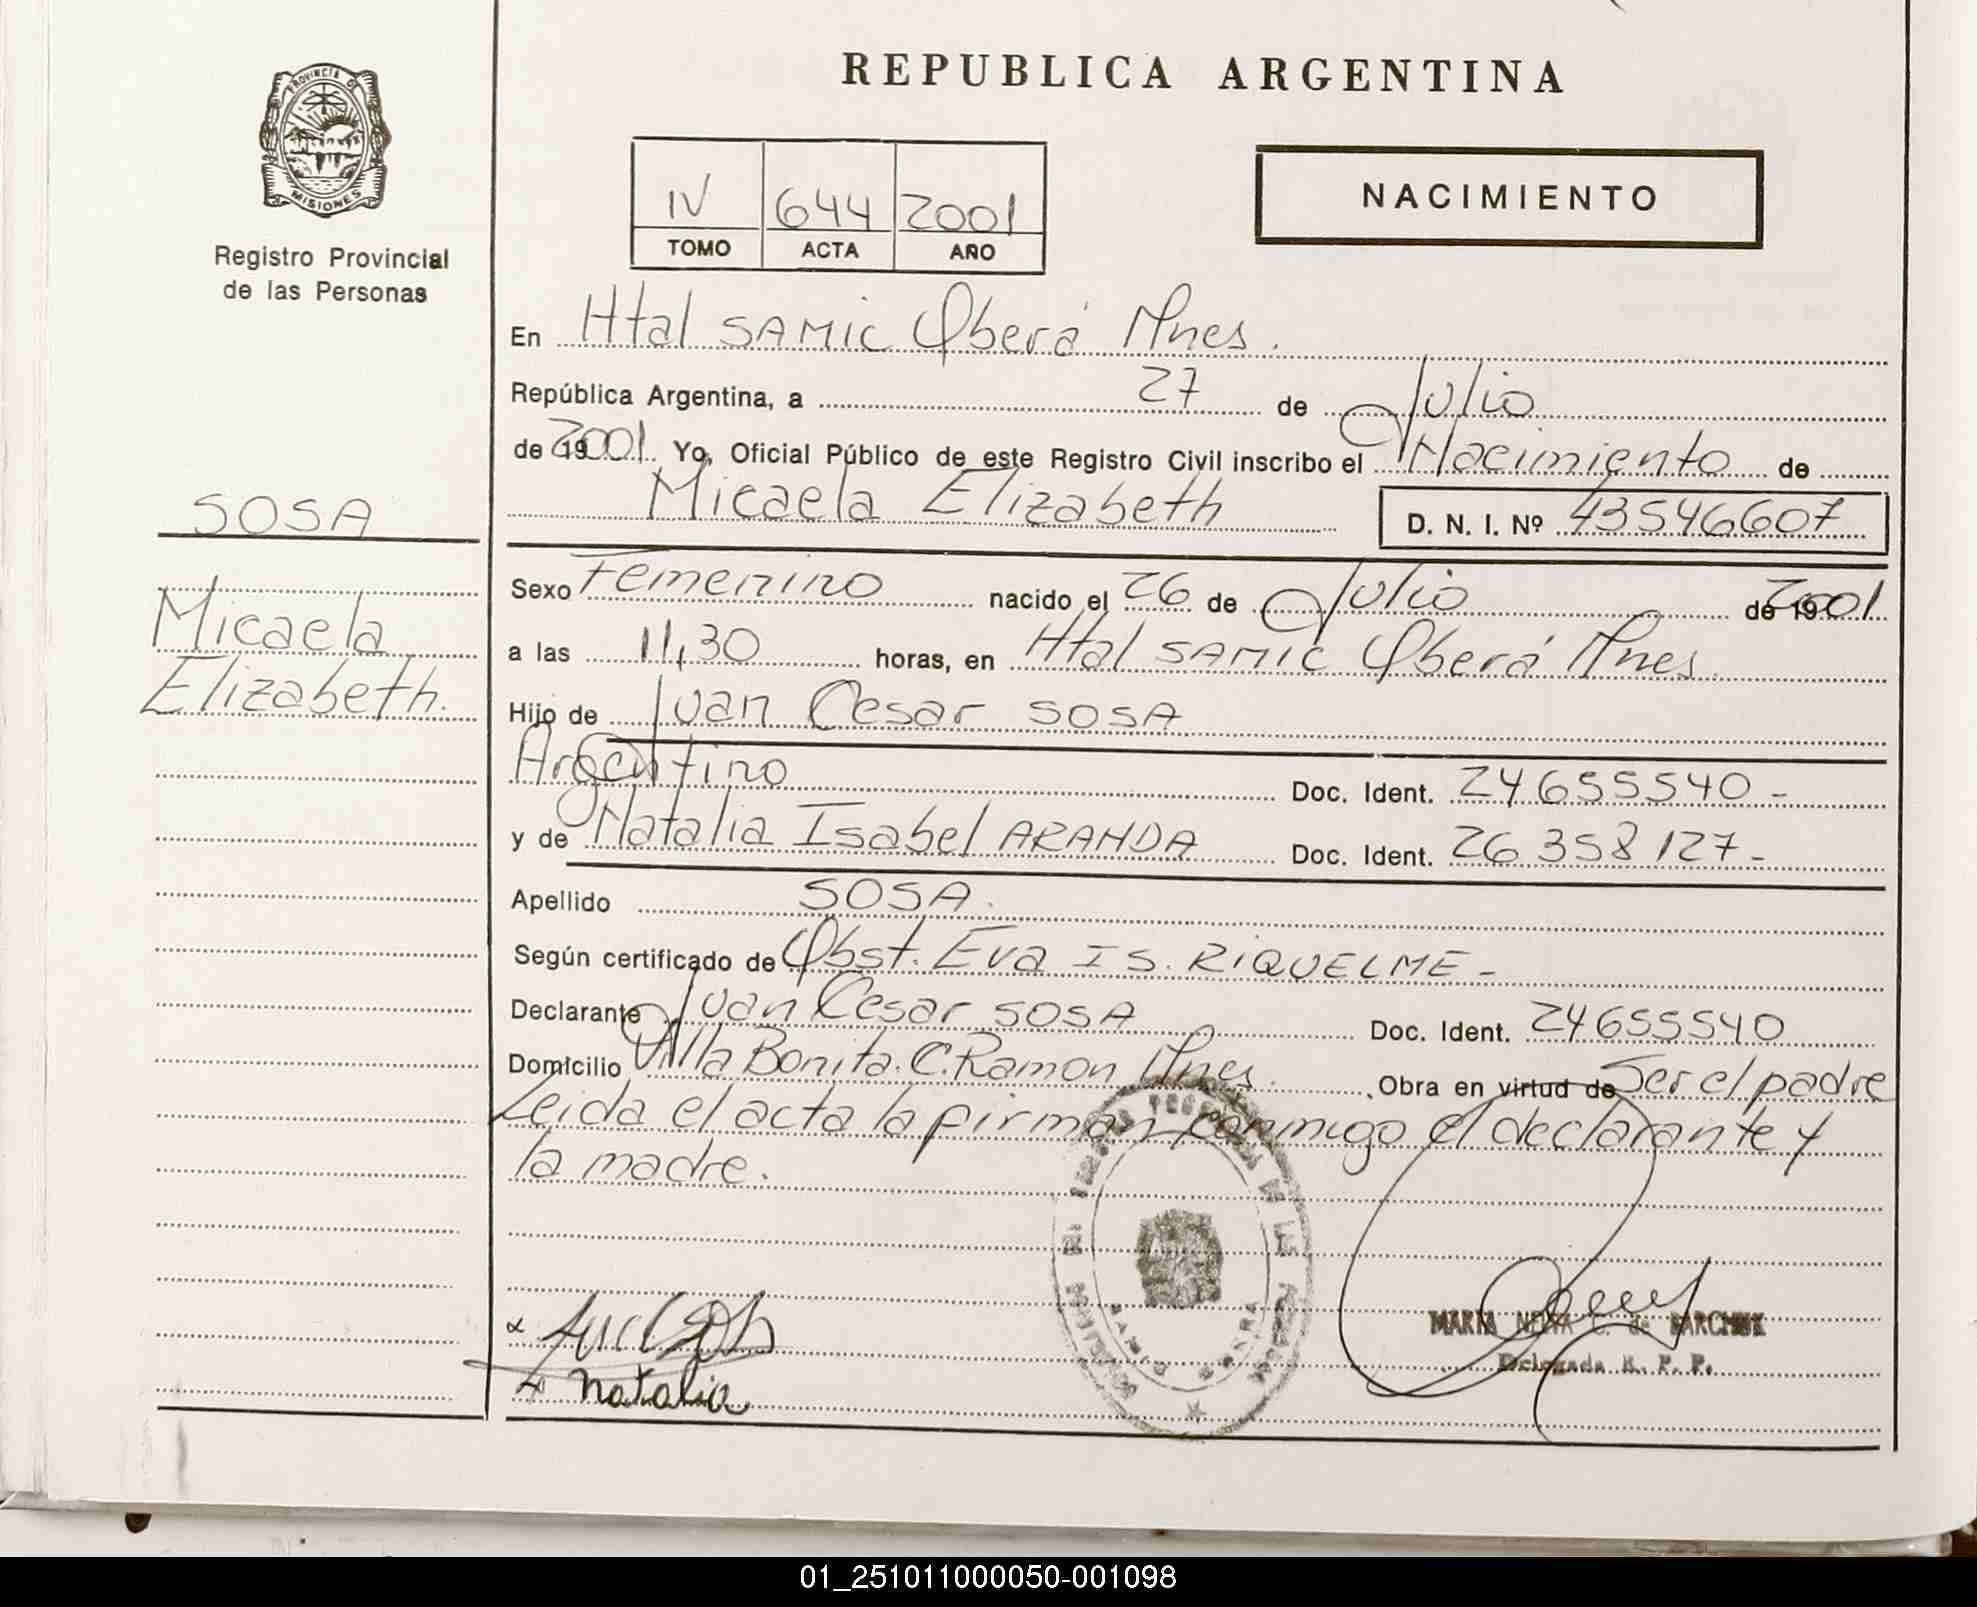 REPUBLICA ARGENTINA
PROVINCIA DE
MISIONES
Registro Provincial
de las Personas
IV 644 2001
TOMO ACTA AÑO
NACIMIENTO
En Htal SAMIC Oberá Mnes.
República Argentina, a 27 de Julio
de 19 2001 Yo, Oficial Público de este Registro Civil inscribo el Nacimiento de
Micaela Elizabeth D. N. I. Nº 43546607
SOSA
Micaela
Elizabeth.
Sexo Femenino nacido el 26 de Julio de 19 2001
a las 11,30 horas, en Htal SAMIC Oberá Mnes.
Hijo de Juan Cesar SOSA
Argentino Doc. Ident. 24655540 -
y de Natalia Isabel ARANDA Doc. Ident. 26 358 127 -
Apellido SOSA.
Según certificado de Obst. Eva IS. RIQUELME -
Declarante Juan Cesar SOSA Doc. Ident. 24655540
Domicilio Villa Bonita. C. Ramon Mnes. , Obra en virtud de Ser el padre
Leida el acta la firman conmigo el declarante y
la madre.
Natalia
MARIA NELVA C. de
Delegada R. P. P.
01_251011000050-001098